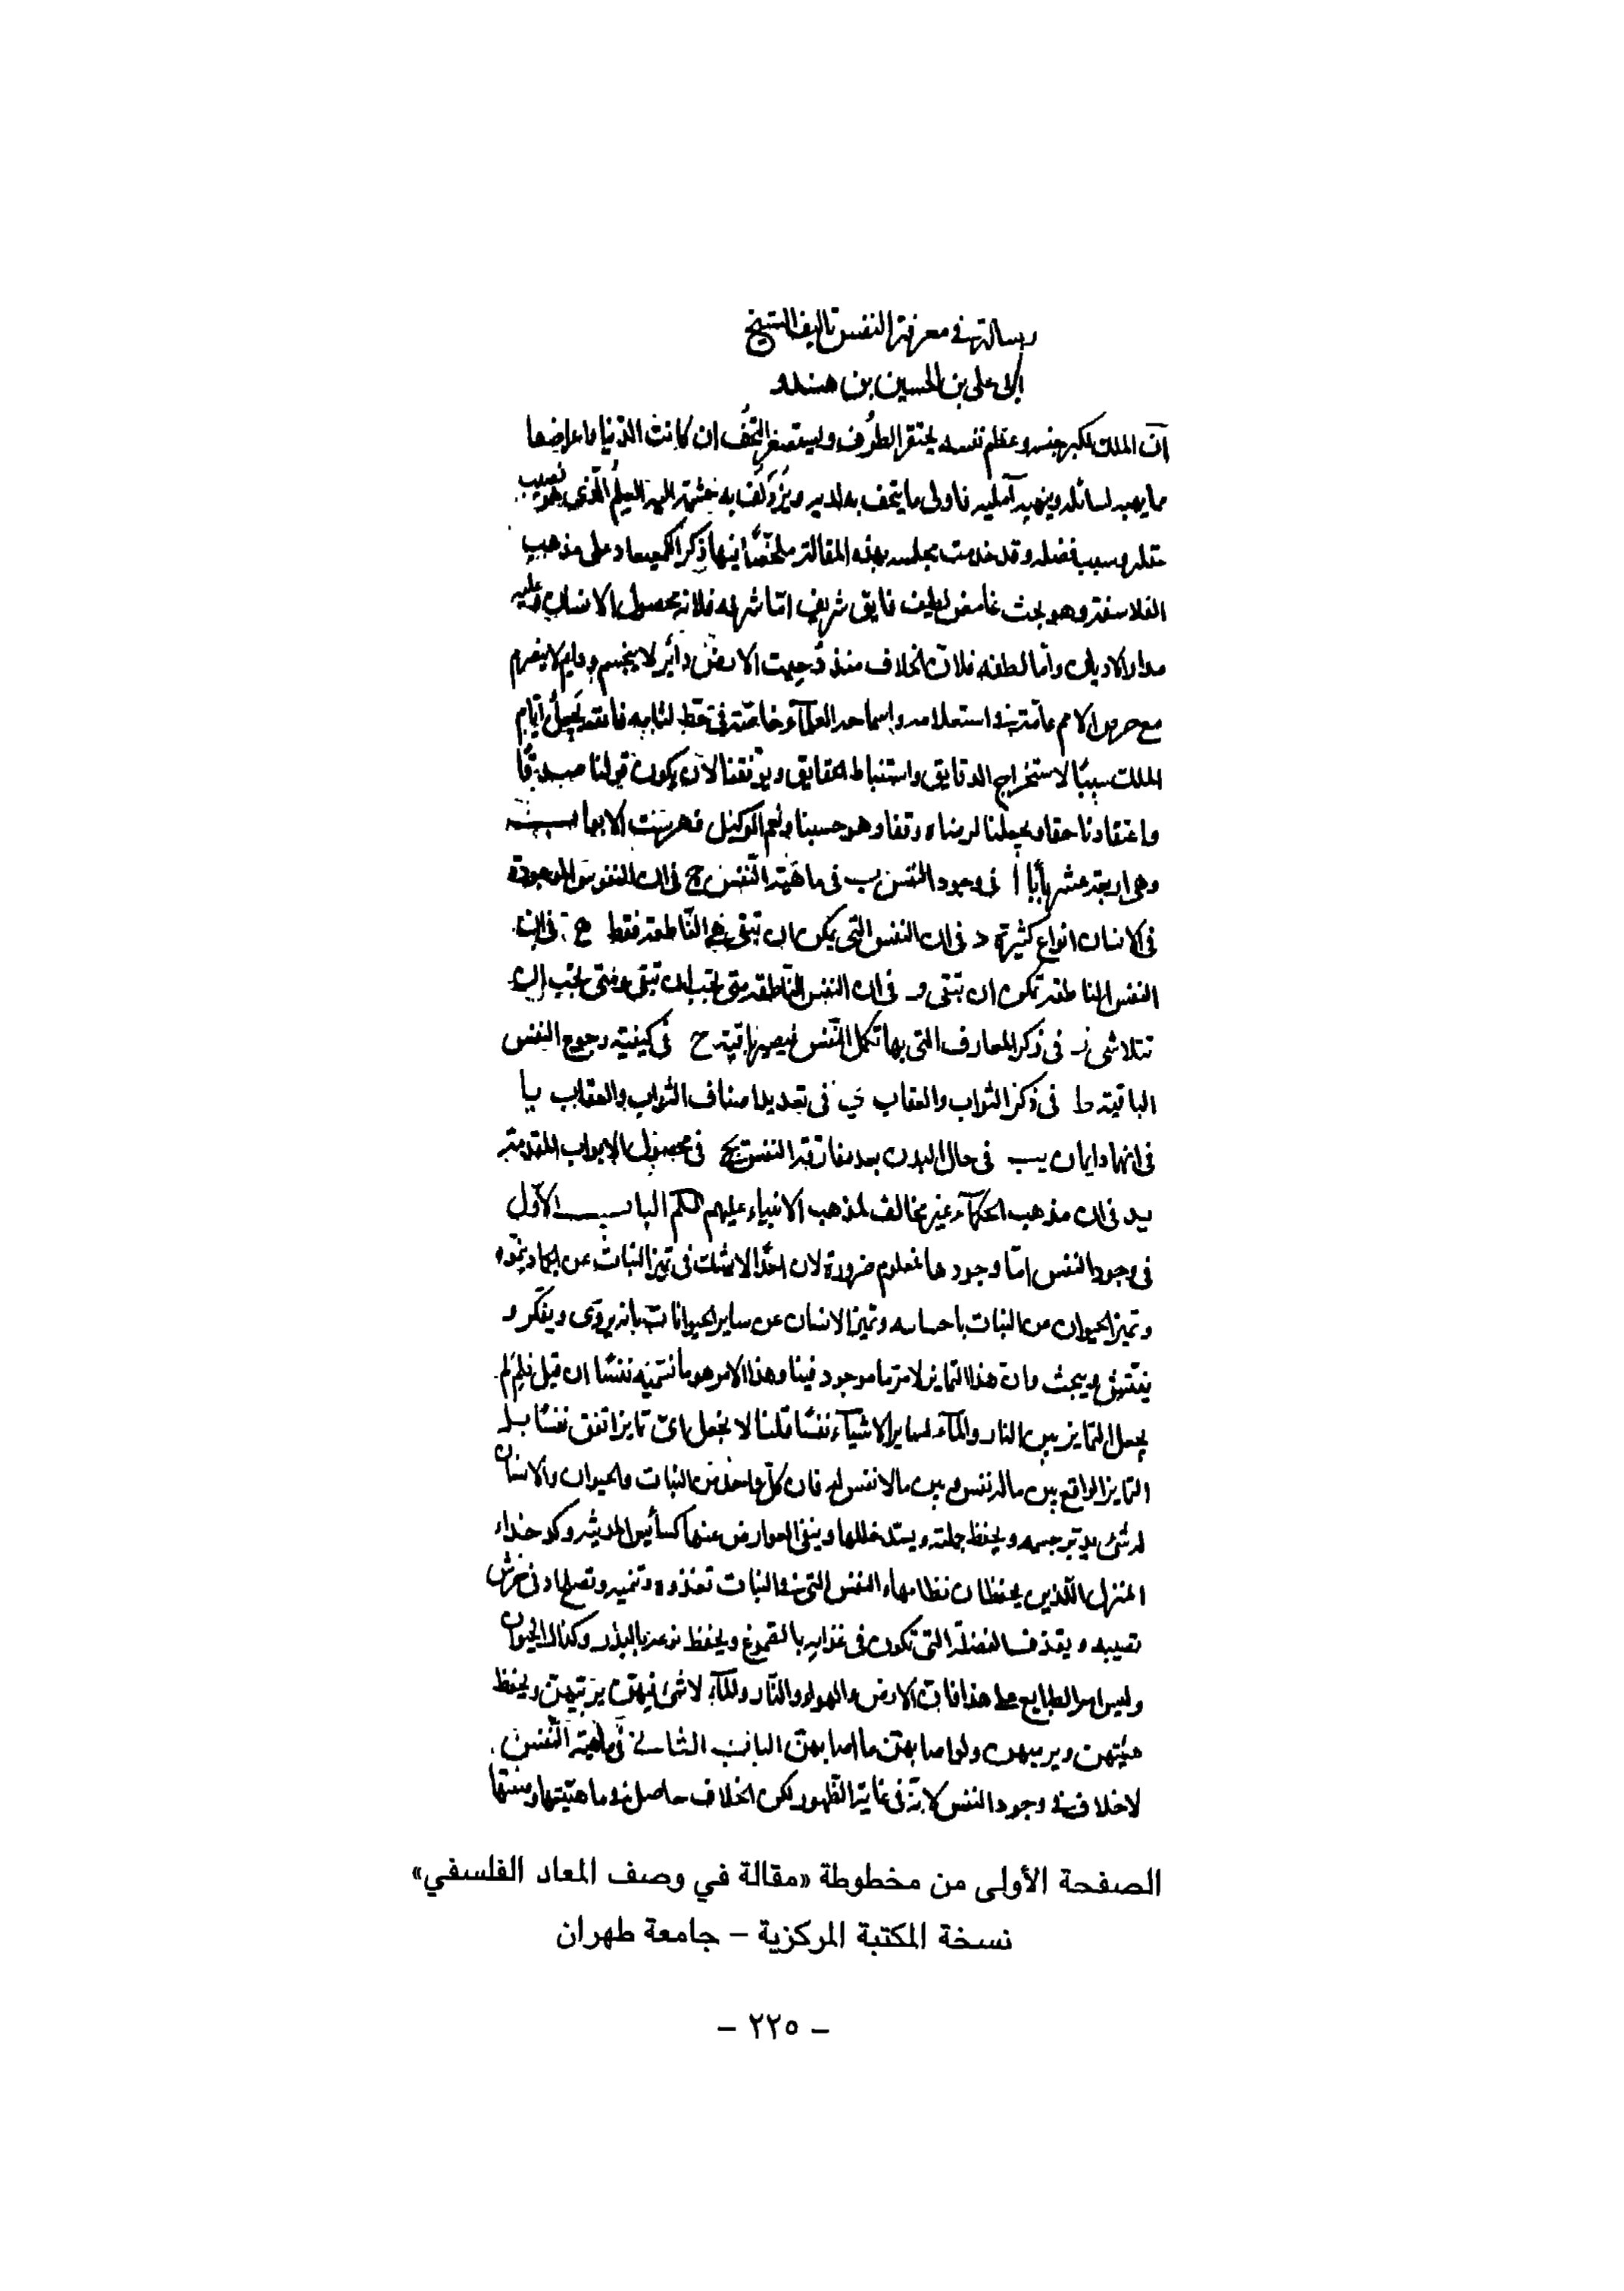 رسالة في معرفة النفس تاليف الشيخ
ابى على بن الحسين بن هندو
ان الملك لكبر جنسه وعظم نفسه يحتقر الطُرف ويستصغر التُحَف ان كانت الدنيا باعراضها
مما يهبه لسائله وينهبه آمليه فاولى ما يتحف به لديه ويزدلف به اليه العلمُ الّذى هو نصيب
عقله وسبب فضله وقد خدمت مجلسه بهذه المقالة ملخّصًا فيها ذكر المعاد على مذهب
الفلاسفة وهو بحث غامض لطيف فايق شريف امّا شرفه فلانه محصول الانسان وعليه
مدار الاديان وأما لطفه فلانّ الخلاف منذ دُحِيت الارض دائر لا ينحسم ودايم لا ينصرم
مع حرص الامم عامّة فى استعلامه العلمآء خاصّة فى فالله يجعل ايّام
الملك سببًا لاستخراج الدقايق واستنباط الحقايق ويوفقنا لان يكون قولنا صدقًا
واعتقادنا حقا ويجعلنا لرضاه وقفا وهو حسبنا ونعم الوكيل فهرست الابواب
وهى اربعة عشر بابًا أ فى وجود النفس ب فى ماهيّة النّفس ج فى ان النفوس الموجودة
فى الانسان انواع كثيرة د فى ان النفس التى يمكن ان تبقى هى النّاطقة فقط ه فى ان
النفس الناطقة يمكن ان تبقى و فى ان النفس النّاطقة متى يجب ان تبقى ومتى يجب ان
تتلاشى ز فى ذكر المعارف التى بها تكمل النّفس فيصير باقية ح فى كيفية رجوع النفس
الباقية ط فى ذكر الثواب والعقاب ى فى تعديد اصناف الثواب والعقاب يا
فى انهما دايمان يب فى حال البدن بعد مفارقة النفس يج فى محصول الابواب المتقدمة
يد فى ان مذهب الحكمآء غير مخالف لمذهب الانبياء عليهم السلم الباب الاوّل
فى وجود النفس امّا وجودها فمعلوم ضرورة لان احدًا لا يشك فى تميز النبات عن الجماد بنموّه
وتميز الحيوان من النبات باحساسه وتميز الانسان عن ساير الحيوانات بانه يروّى ويفكّر و
يفتش ويبحث وان هذا التمايز لامر ما موجود فينا وهذا الامر هو ما نسمّيه نفسًا ان قيل فلِمَ لم
يجعل التمايز بين النار والمآء وساير الاشيآء نفسًا قلنا لا نجعل اىّ تمايز اتفق نفسًا بل
التمايز الواقع بين ماله نفس وبين ما لا نفس له فان كلّ واحد من النبات والحيوان والانسان
له شئ يدبّر جسمه ويحفظ جملته ويسدّ خللها وينفى العوارض عنها كسائس المدينة وكد خداء
المنزل اللّذين يحفظان نظامهما والنفس التى فى النبات تغذوه وتنميه وتصلح
تصيبه ويقذف الفضلة التى تكون فى غذايه بالصّموغ ويحفظ نوعه بالبذر وكذلك الحيوان
وليس امر الطبايع على هذا فان الارض والهواء والنّار والمآء لا شئ فيهنّ يربّيهنّ ويحفظ
هيئتهن ويرمّهن ولو اصابهنّ ما اصابهنّ الباب الثانى فى ماهيّة النّفس
لا خلاف فى وجود النفس لانّه فى غاية الظهور لكن الخلاف حاصل فى ماهيّتها ومنشأها
الصفحة الأولى من مخطوطة «مقالة في وصف المعاد الفلسفي»
نسخة المكتبة المركزية – جامعة طهران
– ٢٢٥ –